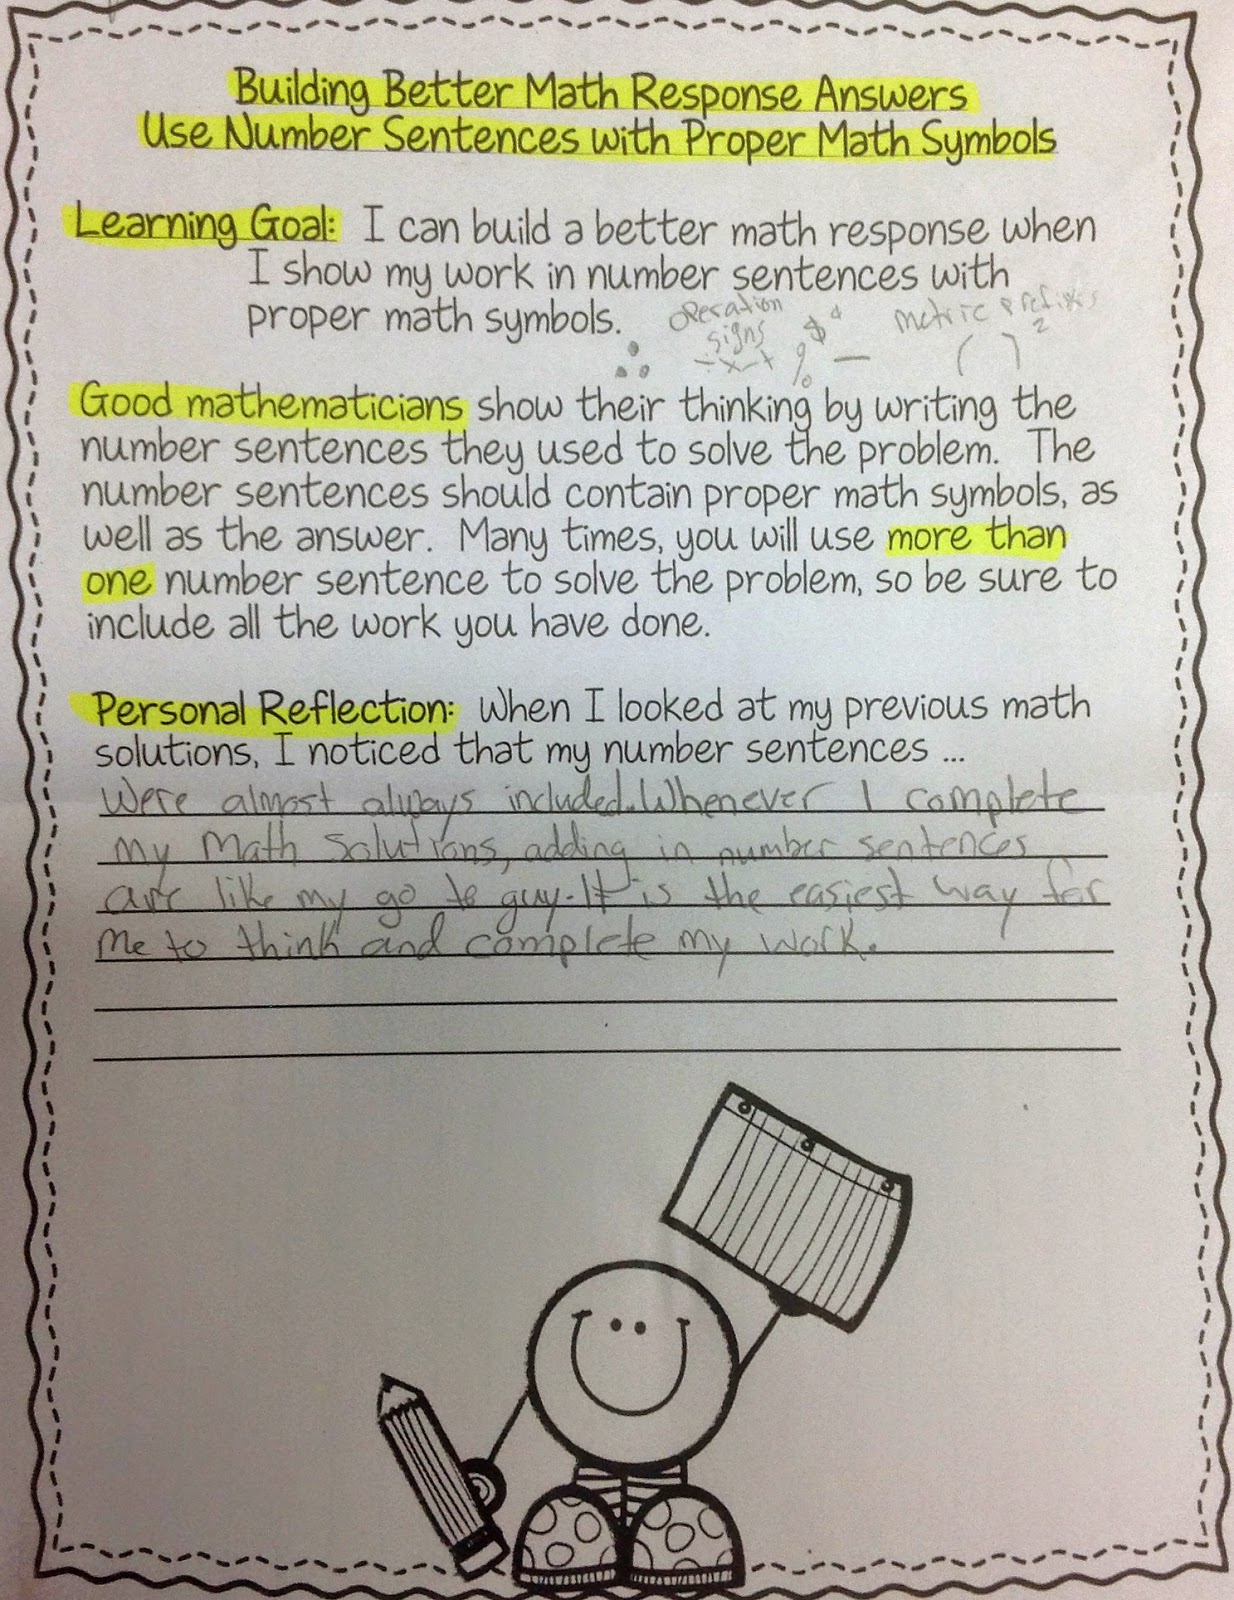 Building Better Math Response Answers
Use Number Sentences with Proper Math Symbols
Learning Goal: I can build a better math response when
I show my work in number sentences with
proper math symbols.
operation signs
÷ × - +
∴ % $ ¢ —
metric prefixes
( ) ²
Good mathematicians show their thinking by writing the
number sentences they used to solve the problem. The
number sentences should contain proper math symbols, as
well as the answer. Many times, you will use more than
one number sentence to solve the problem, so be sure to
include all the work you have done.
Personal Reflection: When I looked at my previous math
solutions, I noticed that my number sentences ...
Were almost always included. Whenever I complete
my math solutions, adding in number sentences
are like my go to guy. It is the easiest way for
me to think and complete my work.